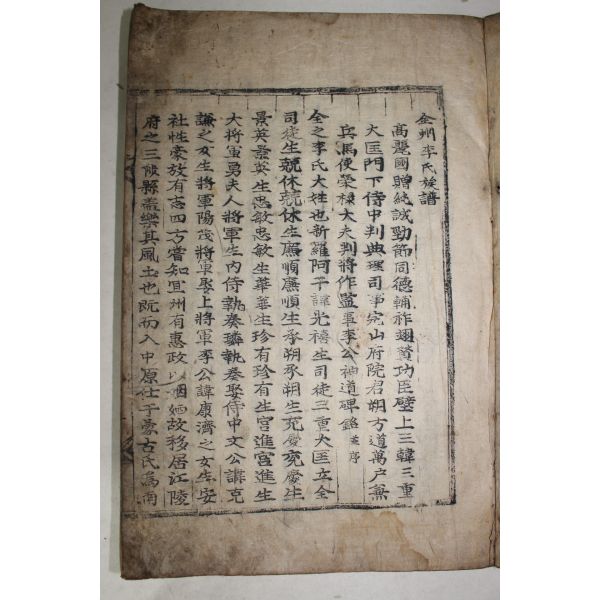 全州李氏族譜
高麗國贈純誠勁節同德輔祚翊贊功臣壁上三韓三重
大匡門下侍中判典理司事完山府院君朔方道萬戶兼
兵馬使榮祿大夫判將作監事李公神道碑銘并序
全之李氏大姓也新羅阿干諱光禧生司徒三重大匡立全
司徒生兢休兢休生廉順廉順生承朔承朔生充慶充慶生
景英景英生忠敏忠敏生華華生珍有珍有生宮進宮進生
大將軍勇夫人將軍生內侍執奏璘執奏娶侍中文公諱克
謙之女生將軍陽茂將軍娶上將軍李公諱康濟之女生安
社性豪放有志四方嘗知宜州有惠政以烟嫡故移居江陵
府之三陟縣盖樂其風土也旣而入中原仕于蒙古氏爲南